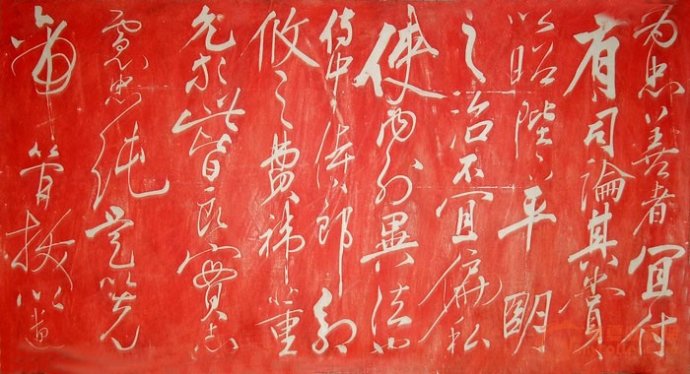 為忠善者宜付
有司論其刑賞
以昭陛下平明
之治不宜偏私
使内外異法也
侍中侍郎郭
攸之費禕董
允等此皆良實志
慮忠純是以先
帝簡拔以遺